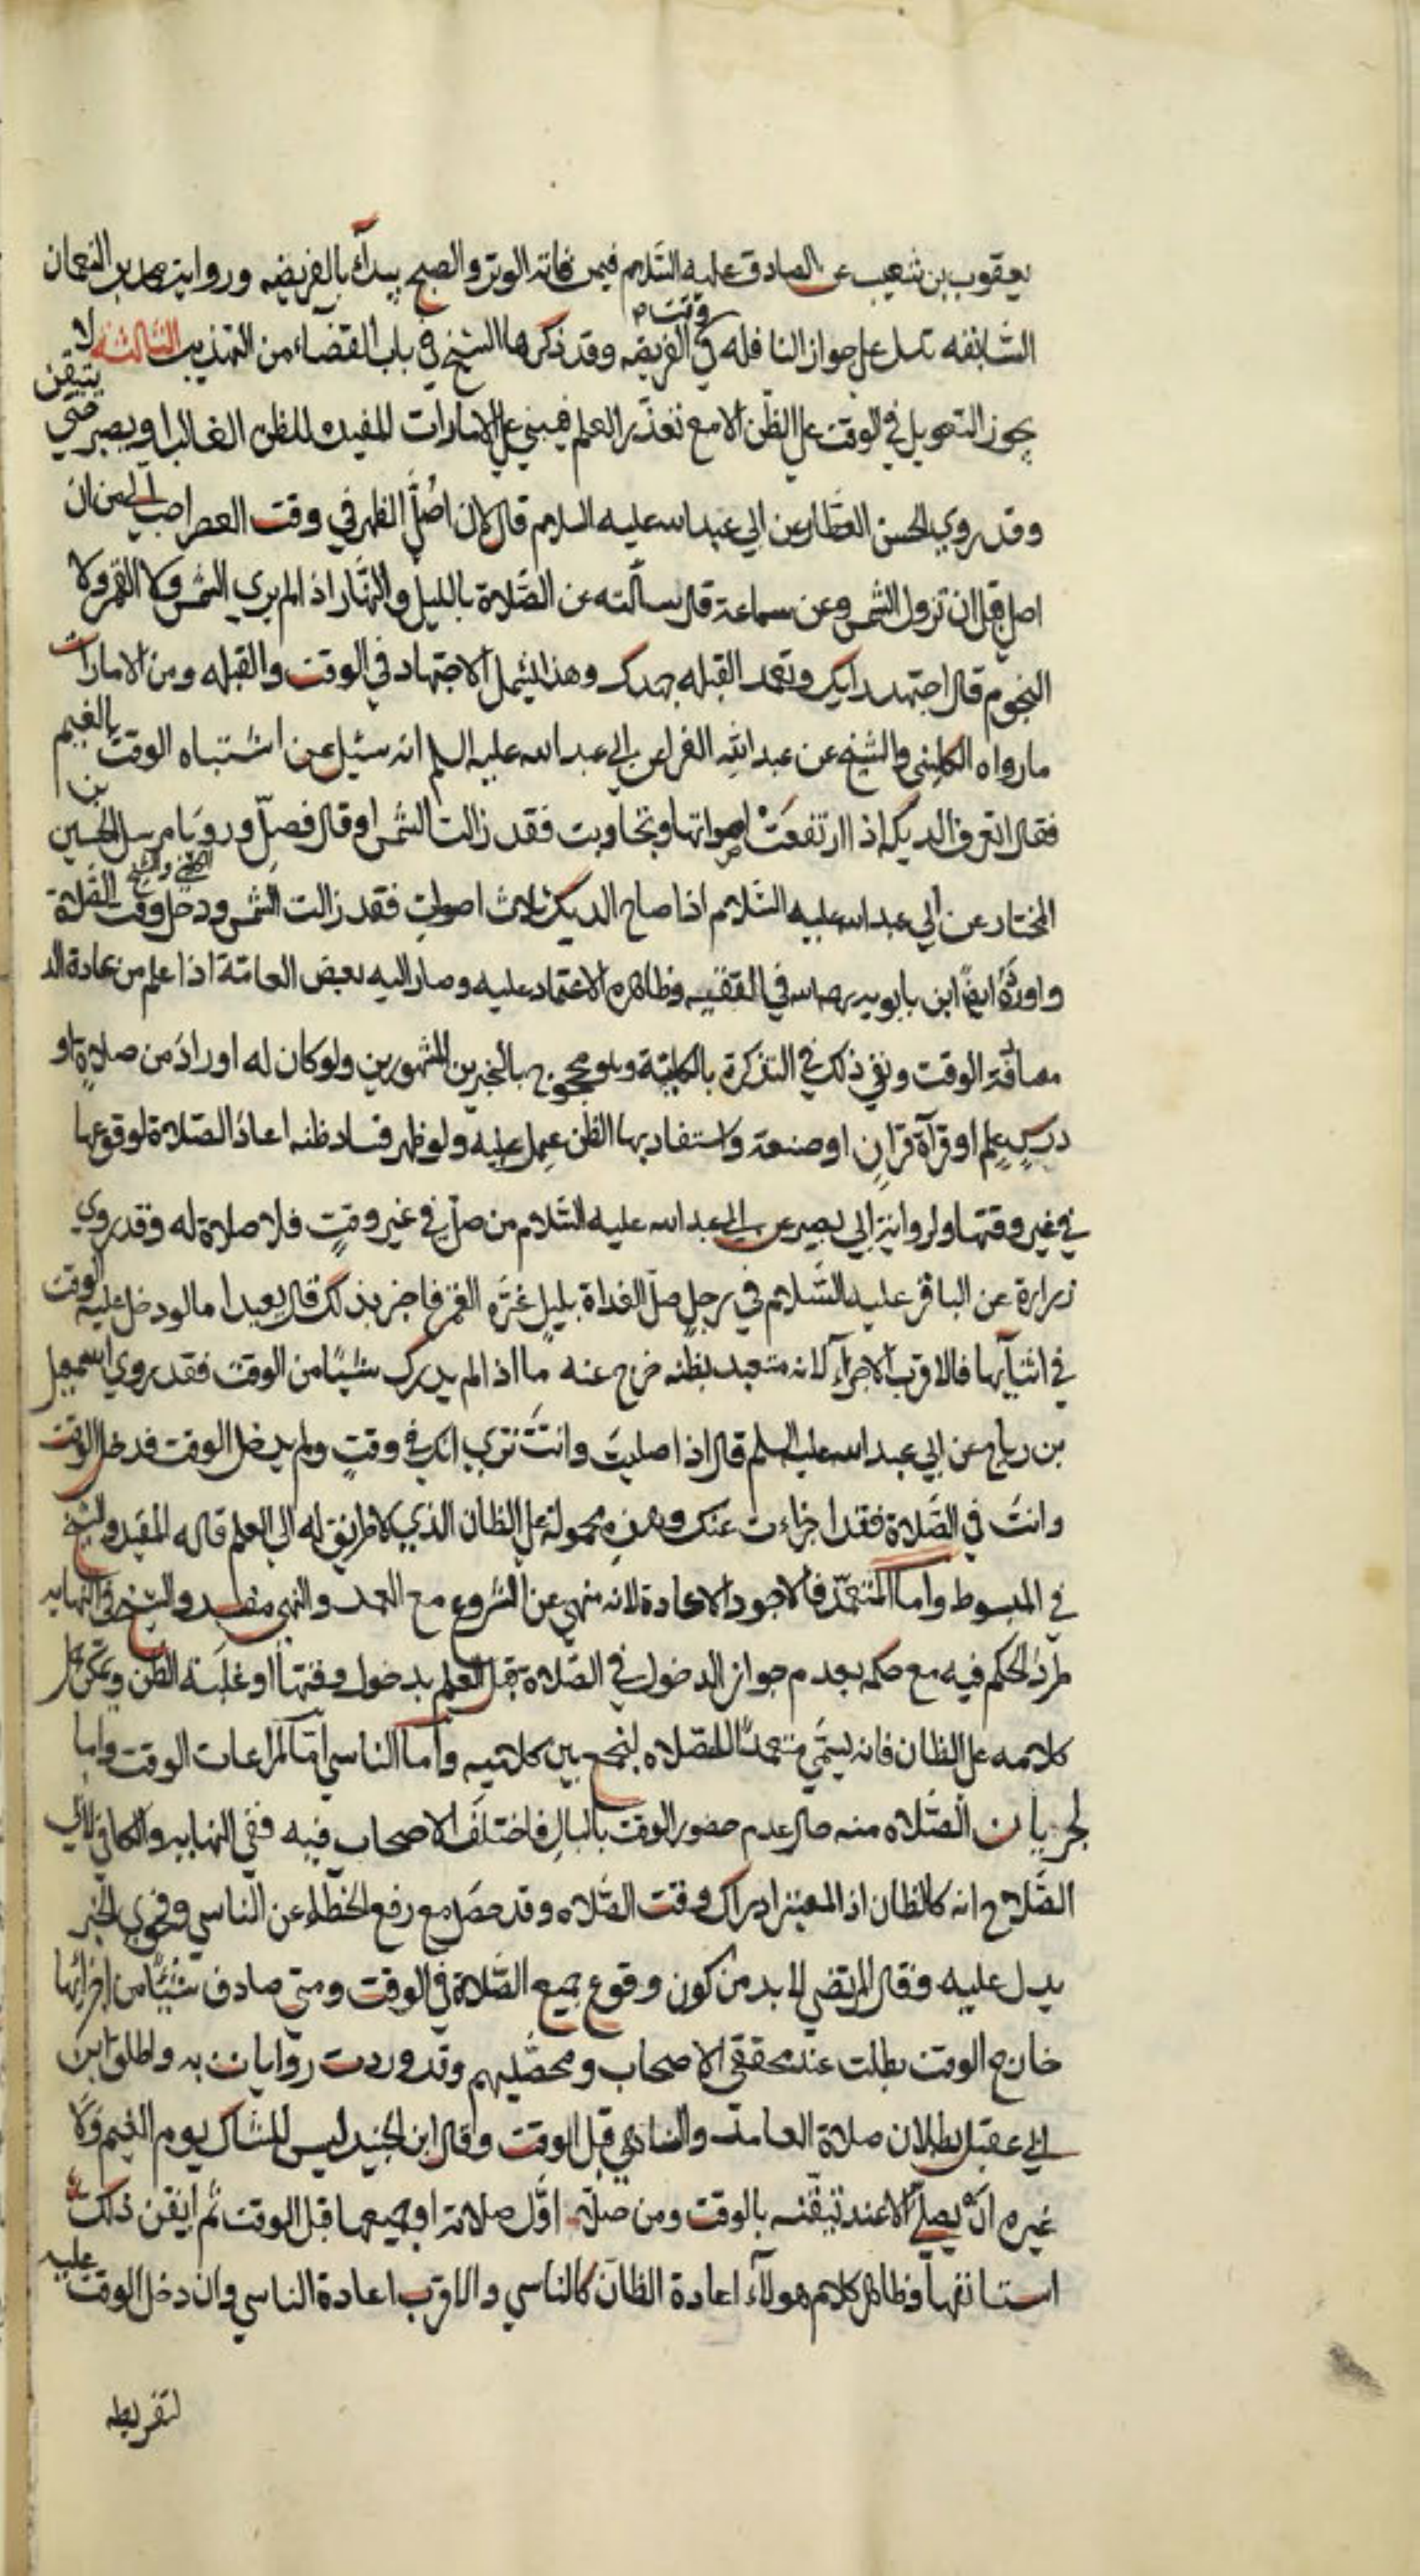 يعقوب بن شعيب عن الصادق عليه السّلام فيمن فاته الوتر والصبح يبدأ بالفريضه ورواية محمد بن النعمان
السّابقه تدل على جواز النافله في وقت الفريضه وقد ذكرها الشيخ في باب القضاء من التهذيب الثالثه لا
يجوز التعويل في الوقت على الظّن الا مع تعذّر العلم فيبني على الامارات المفيده للظن الغالب او يصبر حتى يتيقن
وقد روي الحسن العطار عن ابي عبد الله عليه السلام قال لان اصلّ الظهر في وقت العصر احب الي من ان
اصلي قبل ان تزول الشمس وعن سماعة قال سألته عن الصّلاة بالليل والنّهار اذ الم يري الشمس ولا القمر ولا
النجوم قال اجتهد رايك وتعمد القبله جهدك وهذا يشمل الاجتهاد في الوقت والقبله ومن الامارات
ما رواه الكليني والشيخ عن عبد الله الفراء عن ابي عبد الله عليه السلم انه سئل عن اشتباه الوقت بالغيم
فقال اتعرف الديكه اذا ارتفعت اصواتها وتجاوبت فقد زالت الشمس او قال فصلّ ورويا مرسل الحسين بن
المختار عن ابي عبد الله عليه السّلام اذا صاح الديك ثلاث اصوات فقد زالت الشمس ودخل وقت الصّلاة
واورده ايضا ابن بابويه رحمه الله في الفقيه وظاهره الاعتماد عليه وصار اليه بعض العامّة اذا علم من عادة الد
مصادفة الوقت ونفي ذلك في التذكرة بالكليّة وهو محجوج بالخبرين المشهورين ولو كان له اوراد من صلاةٍ او
درسٍ علمٍ او قرآة قرانٍ او صنعة واستفاد بها الظن عمل عليه ولو ظهر فساد ظنه اعاد الصّلاة لوقوعها
في غير وقتها ولرواية ابي بصير عن ابي عبد الله عليه السّلام من صلّ في غير وقتٍ فلا صلاة له وقد روي
زرارة عن الباقر عليه السّلام في رجلٍ صلّ الغداة بليلٍ غرّه القمر فاخبر بذلك قال يعيد اما لو دخل عليه الوقت
في اثنآئها فالاقرب الاجزاء لانه متعبد بظنه خرج عنه ما اذا لم يدرك شيئًا من الوقت فقد روي اسمعيل
بن رباح عن ابي عبد الله عليه السلم قال اذا صليتَ وانتَ تري انك في وقتٍ ولم يدخل الوقت فدخل الوقت
وانتَ في الصّلاة فقد اجزاءت عنك وهذهِ محمولة على الظان الذي لا طريق له الي العلم قاله المفيد والشيخ
في المبسوط واما المتعمّد فالاجود الاعادة لانه منهي عن الشروع مع العمد والنهي مفسد والشيخ في النهايه
طرد الحكم فيه مع حكمه بعدم جواز الدخول في الصّلاة قبل العلم بدخول وقتها او غلبة الظن ويمكن حمل
كلامه على الظان فانه يسمّي متعمدًا للصّلاه ليجمع بين كلاميه واما الناسي امّا لمراعات الوقت واما
لجريان الصّلاه منه حال عدم حضور الوقت بالبالِ فاختلف الاصحاب فيه ففي النهايه والكافي لابي
الصّلاح انه كالظان اذ المعتبر ادراك وقت الصّلاه وقد حصل مع رفع الخطاء عن الناسي وفحوي الخبر
يدل عليه وقال المرتضي لا بد من كون وقوع جميع الصّلاة في الوقت ومتي صادف شيئًا من اجزائها
خارج الوقت بطلت عند محققي الاصحاب ومحصّليهم وقد وردت روايات به واطلق ابن
ابي عقيل بطلان صلاة العامد والناسي قبل الوقت وقال ابن الجنيد ليس للشاك يوم الغيم ولا
غيره ان يصلي الا عند تيقّنه بالوقت ومن صلّي اوّل صلاته او جميعها قبل الوقت ثم ايقن ذلك
استانفها وظاهر كلام هولآء اعادة الظان كالناسي والاقرب اعادة الناسي وان دخل الوقت عليه
لتفريطه